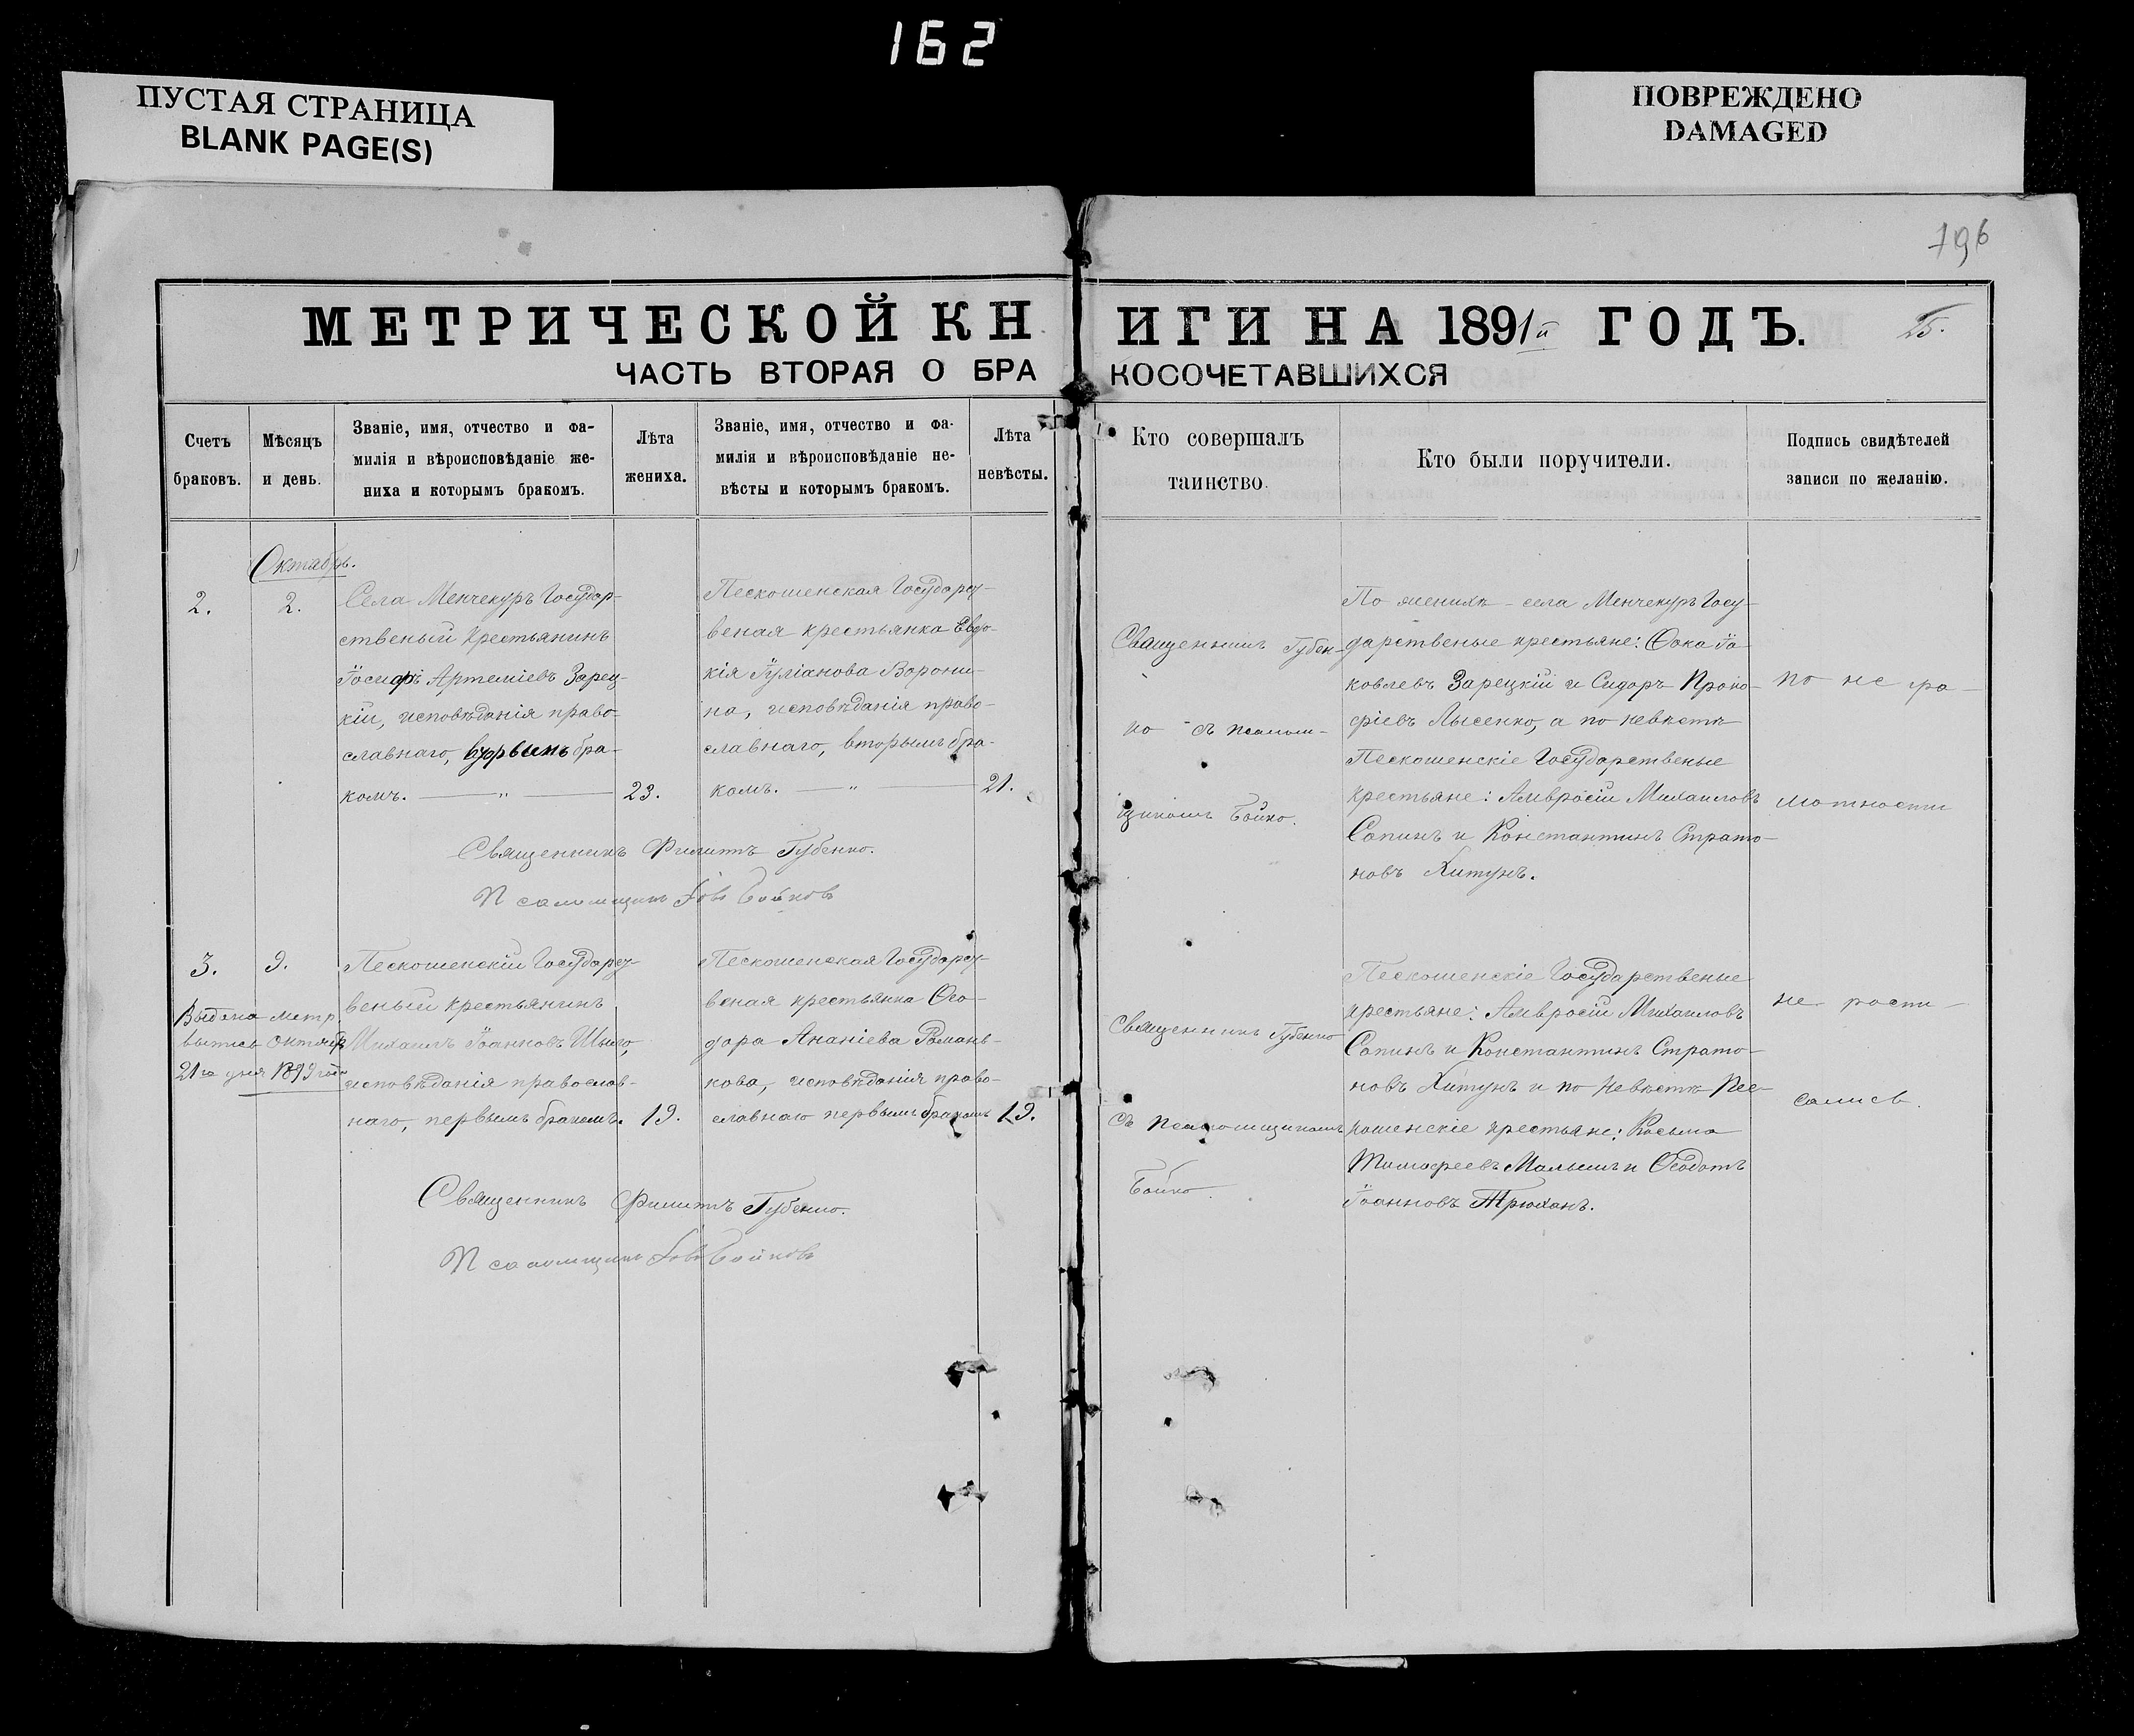 162
ПУСТАЯ СТРАНИЦА
BLANK PAGE(S)
ПОВРЕЖДЕНО
DAMAGED
196
МЕТРИЧЕСКОЙ КНИГИ НА 1891й ГОДЪ.
25.
ЧАСТЬ ВТОРАЯ О БРАКОСОЧЕТАВШИХСЯ
Счетъ
браковъ.
Мѣсяцъ
и день.
Званіе, имя, отчество и фа-
милія и вѣроисповѣданіе же-
ниха и которымъ бракомъ.
Лѣта
жениха.
Званіе, имя, отчество и фа-
милія и вѣроисповѣданіе не-
вѣсты и которымъ бракомъ.
Лѣта
невѣсты.
Кто совершалъ
таинство.
Кто были поручители.
Подпись свидѣтелей
записи по желанію.
Октябрь.
2.
2.
Села Менчекуръ Государ-
ственый крестьянинъ
Іосифъ Артеміевъ Зарец-
кій, исповѣданія право-
славнаго, бра-
комъ. — „ —
23.
Пескошенская Государст-
веная крестьянка Евдо-
кія Іуліанова Ворони-
на, исповѣданія право-
славнаго, вторымъ бра-
комъ. — „ —
21.
Священникъ Губен-
ко съ псалом-
щикомъ Бойко.
По женихѣ - села Менчекуръ Госу-
дарственые крестьяне: Фока Іа-
ковлевъ Зарецкій и Сидоръ Проко-
фіевъ Лысенко, а по невѣстѣ
Пескошенскіе Государственые
крестьяне: Амвросій Михаиловъ
Сапинъ и Константинъ Страто-
новъ Хитунъ.
по не гра-
мотности
Священникъ Филиппъ Губенко.
Псаломщикъ Іовъ Бойковъ
3.
9.
Выдана метр.
выпись Октября
21го дня 1899 года
Пескошенскій Государст-
веный крестьянинъ
Михаилъ Іоанновъ
исповѣданія православ-
наго, первымъ бракомъ.
19.
Пескошенская Государст-
веная крестьянка Фео-
дора Ананіева Романь-
кова, исповѣданія право-
славнаго первымъ бракомъ
19.
Священникъ Губенко
съ псаломщикомъ
Бойко.
Пескошенскіе Государственые
крестьяне: Амвросій Михаиловъ
Сапинъ и Константинъ Страто-
новъ Хитунъ и по невѣстѣ Пес-
кошенскіе крестьяне: Косьма
Тимофеевъ Малышъ и Феодотъ
Іоанновъ Трюханъ.
не распи-
сались.
Священникъ Филиппъ Губенко.
Псаломщикъ Іовъ Бойковъ